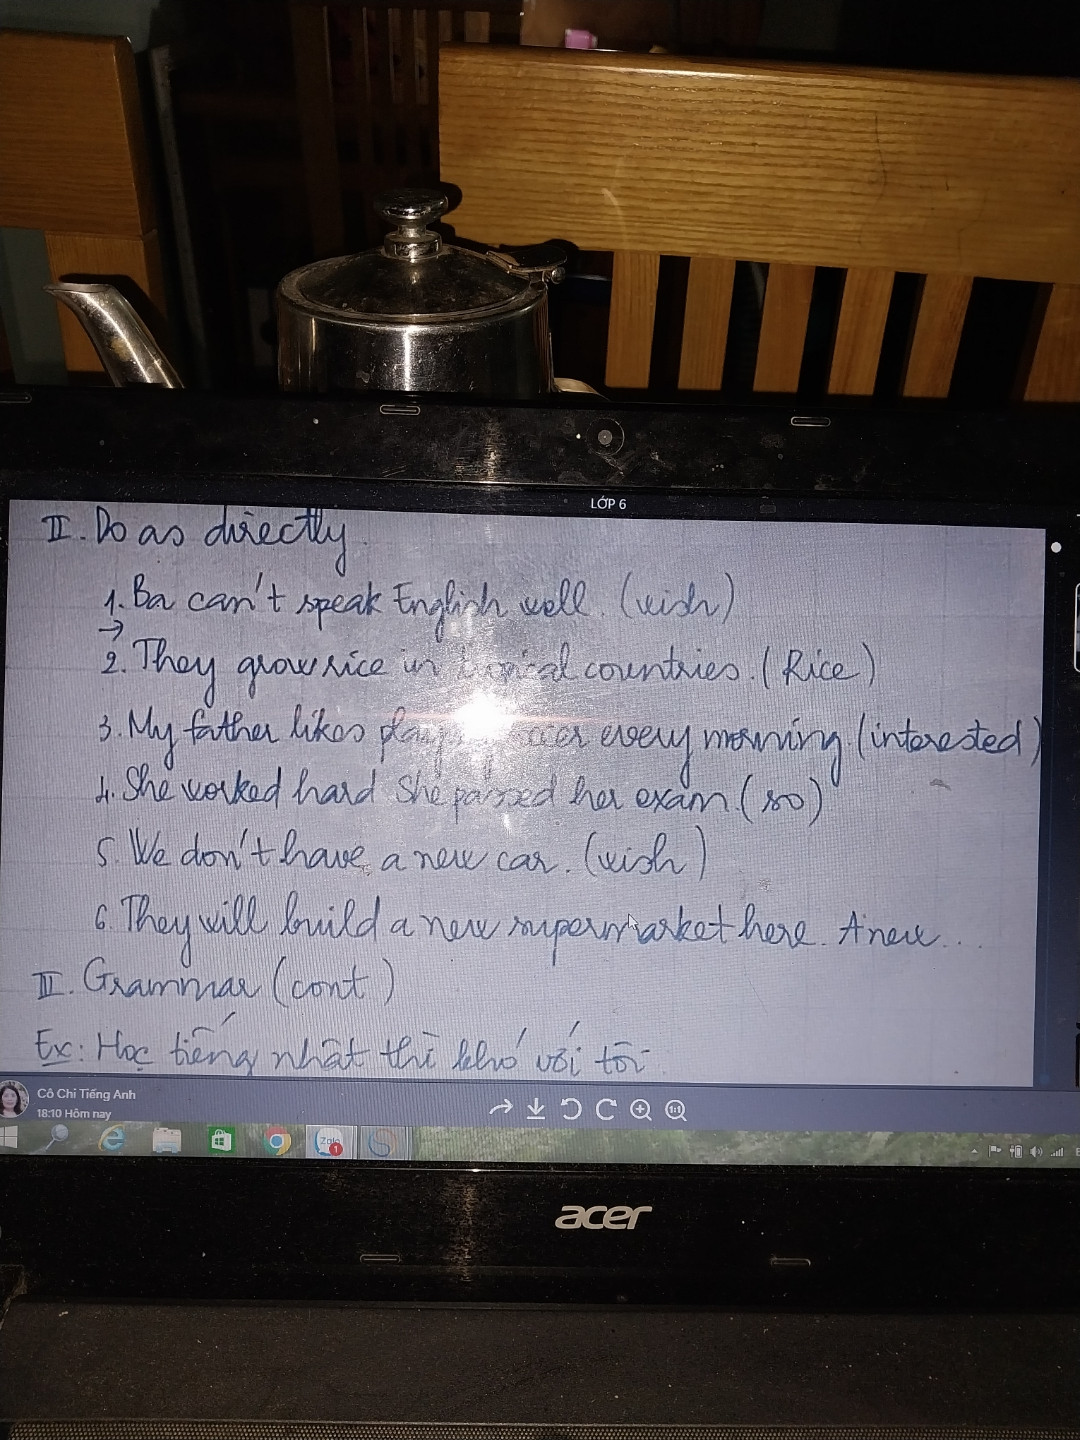 LỚP 6
II. Do as directly.
1. Ba can't speak English well. (wish)
→
2. They grow rice in countries. (Rice)
3. My father likes every morning. (interested)
4. She worked hard She passed her exam (so)
5. We don't have a new car. (wish)
6. They will build a new supermarket here. A new...
III. Grammar (cont)
Ex: Học tiếng nhật thì khó với tôi.
Cô Chi Tiếng Anh
18:10 Hôm nay
1:1
Zalo
1
acer